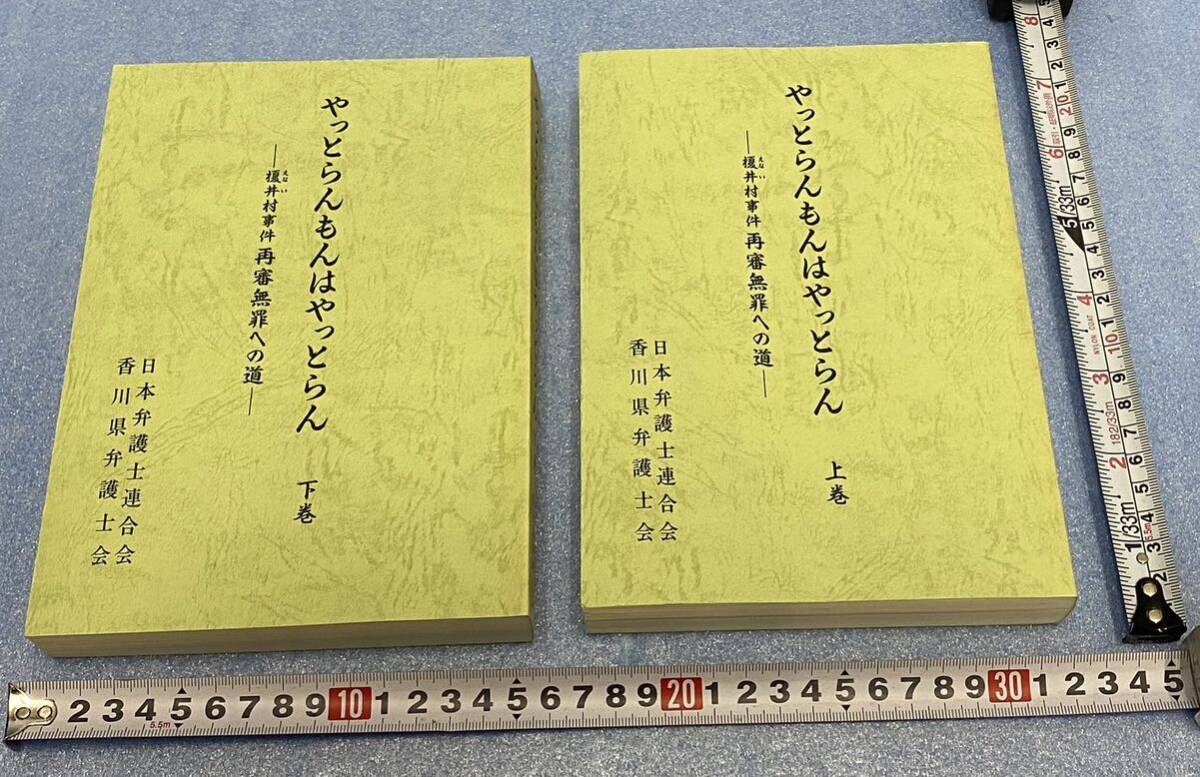 やっとらんもんはやっとらん 下巻
―榎井村事件 再審無罪への道―
えない
日本弁護士連合会
香川県弁護士会
やっとらんもんはやっとらん 上巻
―榎井村事件 再審無罪への道―
えない
日本弁護士連合会
香川県弁護士会
2 3 4 5 6 7 8 9 10 1 2 3 4 5 6 7 8 9 20 1 2 3 4 5 6 7 8 9 30 1 2 3 4 5
5.5m
8 7 6 5/33m 4 3 2 1/33m
182/33m
NYLON COAT
5.5m